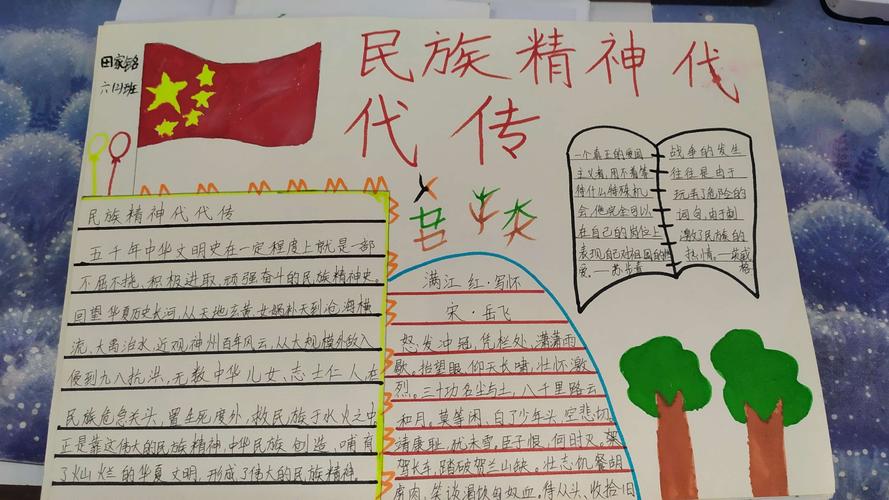 民族精神代
代传
田家铭
六(2)班
民族精神代代传
五千年中华文明史在一定程度上就是一部
不屈不挠、积极进取、顽强奋斗的民族精神史。
回望华夏历史长河,从天地玄黄、女娲补天到沧海横
流、大禹治水,近观神州百年风云,从大规模外敌入
侵到九八抗洪,无数中华儿女、志士仁人在
民族危急关头,置生死度外,救民族于水火之中
正是靠这伟大的民族精神,中华民族创造、哺育
了灿烂的华夏文明,形成了伟大的民族精神。
满江红·写怀
宋·岳飞
怒发冲冠,凭栏处、潇潇雨
歇。抬望眼,仰天长啸,壮怀激
烈。三十功名尘与土,八千里路云
和月。莫等闲、白了少年头,空悲切
靖康耻,犹未雪。臣子恨,何时灭。驾
驾长车,踏破贺兰山缺。壮志饥餐胡
虏肉,笑谈渴饮匈奴血。待从头、收拾旧
一个真正的爱国
主义者,用不着等
待什么特殊机
会,他完全可以
在自己的岗位上
表现自己对祖国的热
爱。——苏步青
战争的发生
往往是由于
玩弄了危险的
词句,由于刺
激了民族的
热情。——英